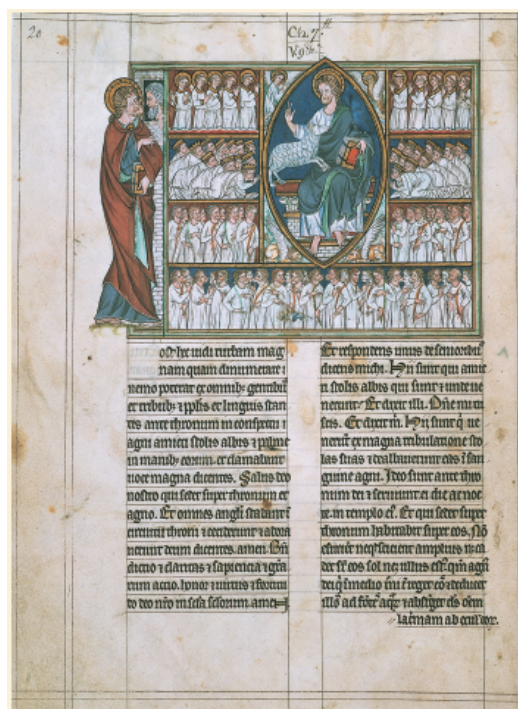 20
Ch. 7.
V. 9
ost hec uidi turbam mag
nam quam dinumerare
nemo poterat ex omnib; gentib;
et tribub; ⁊ pplis et linguis stan
tes ante thronum in conspectu
agni amicti stolis albis ⁊ palme
in manib; eorum. et clamabant
uoce magna dicentes. Salus deo
nostro qui sedet super thronum et
agno. Et omnes angli stabant i
circuitu throni ⁊ ceciderunt ⁊ adora
uerunt deum dicentes. amen. Bn
dictio ⁊ claritas ⁊ sapiencia ⁊ gra
rum actio. honor ⁊ uirtus ⁊ fortitu
do deo nro in scla sclorum. amen
Et respondens unus de seniorib;
dicens michi. Hii sunt qui amic
ti stolis albis qui sunt ⁊ unde ue
nerunt. Et dixit illi. Dne mi tu
scis. Et dixit m. Hii sunt q ue
nerūt ex magna tribulatione ⁊ sto
las suas ⁊ dealbauerunt eas ī san
guine agni. Ideo sunt ante thro
num dei ⁊ seruiunt ei die ac noc
te. in templo eī. Et qui sedet super
thronum habitabit super eos. Nō
esurient neq; sicient amplius
eos sol ne ullus
⁊ reget eos ⁊ deducet
illos ad ⁊ absterget oēm
lacrimam ab